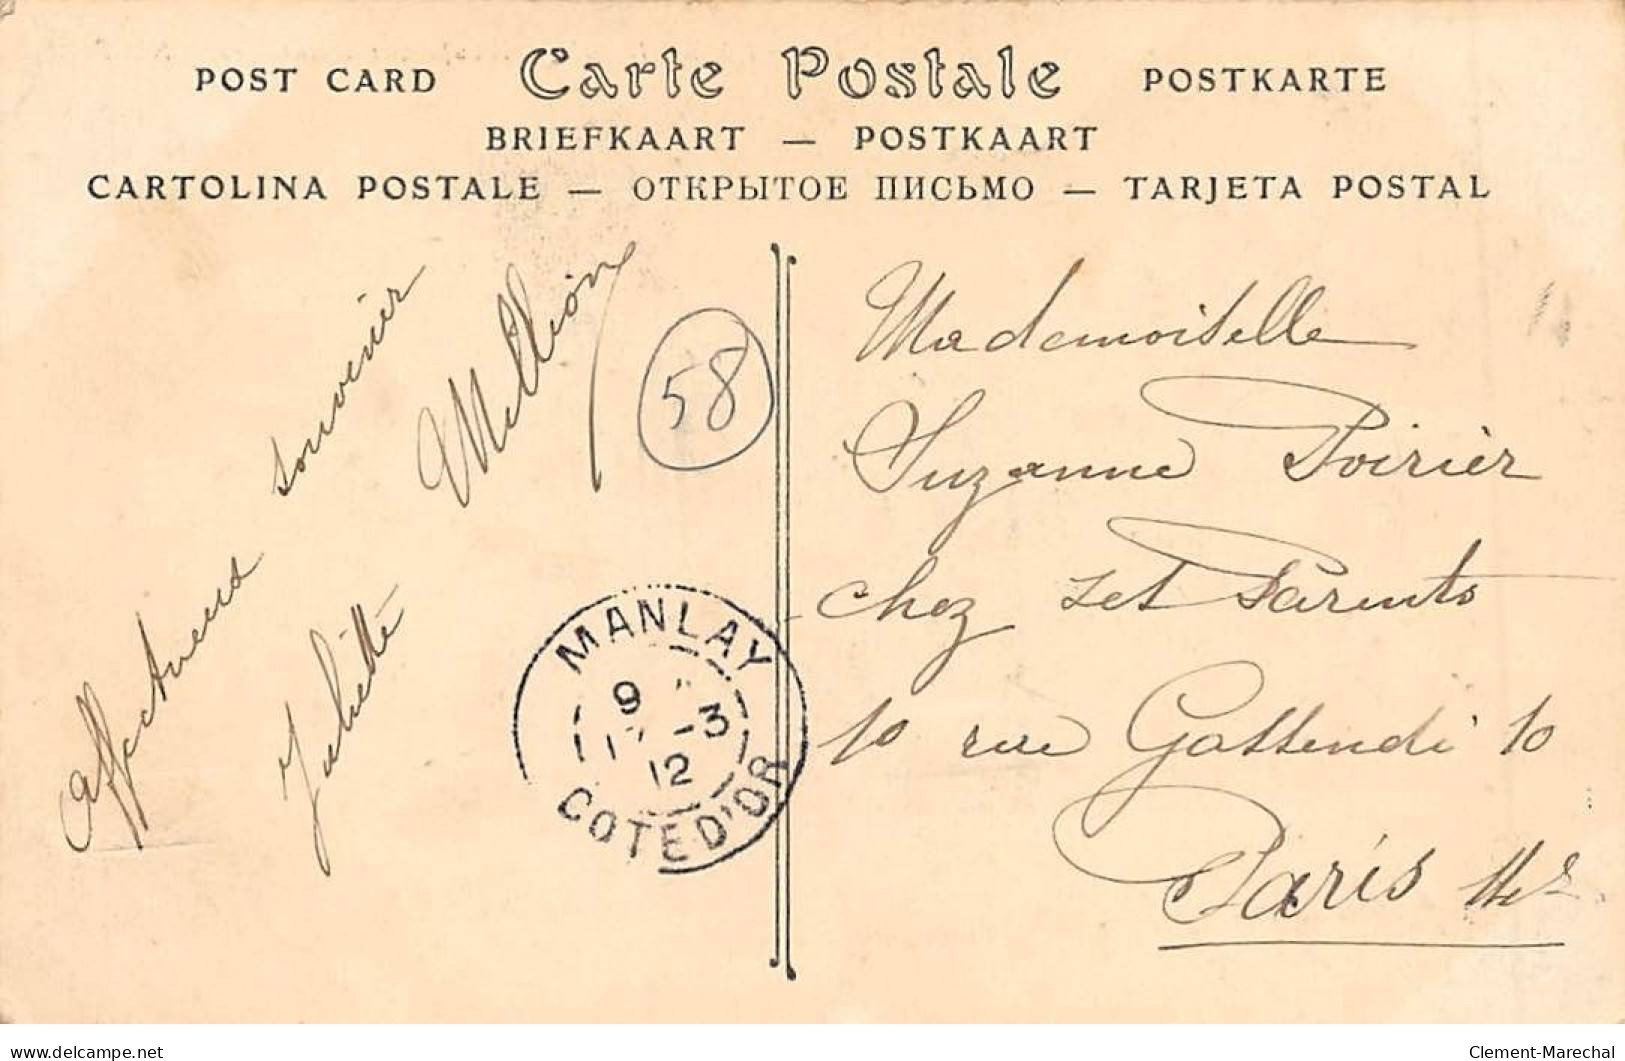 POST CARD Carte Postale POSTKARTE
BRIEFKAART — POSTKAART
CARTOLINA POSTALE — ОТКРЫТОЕ ПИСЬМО — TARJETA POSTAL
Affectueux souvenir
Juliette Million
58
MANLAY
9
-3
12
COTE D'OR
Mademoiselle
Suzanne Poirier
chez ses Parents
10 rue Gassendi 10
Paris
delcampe.net
Clement-Marechal